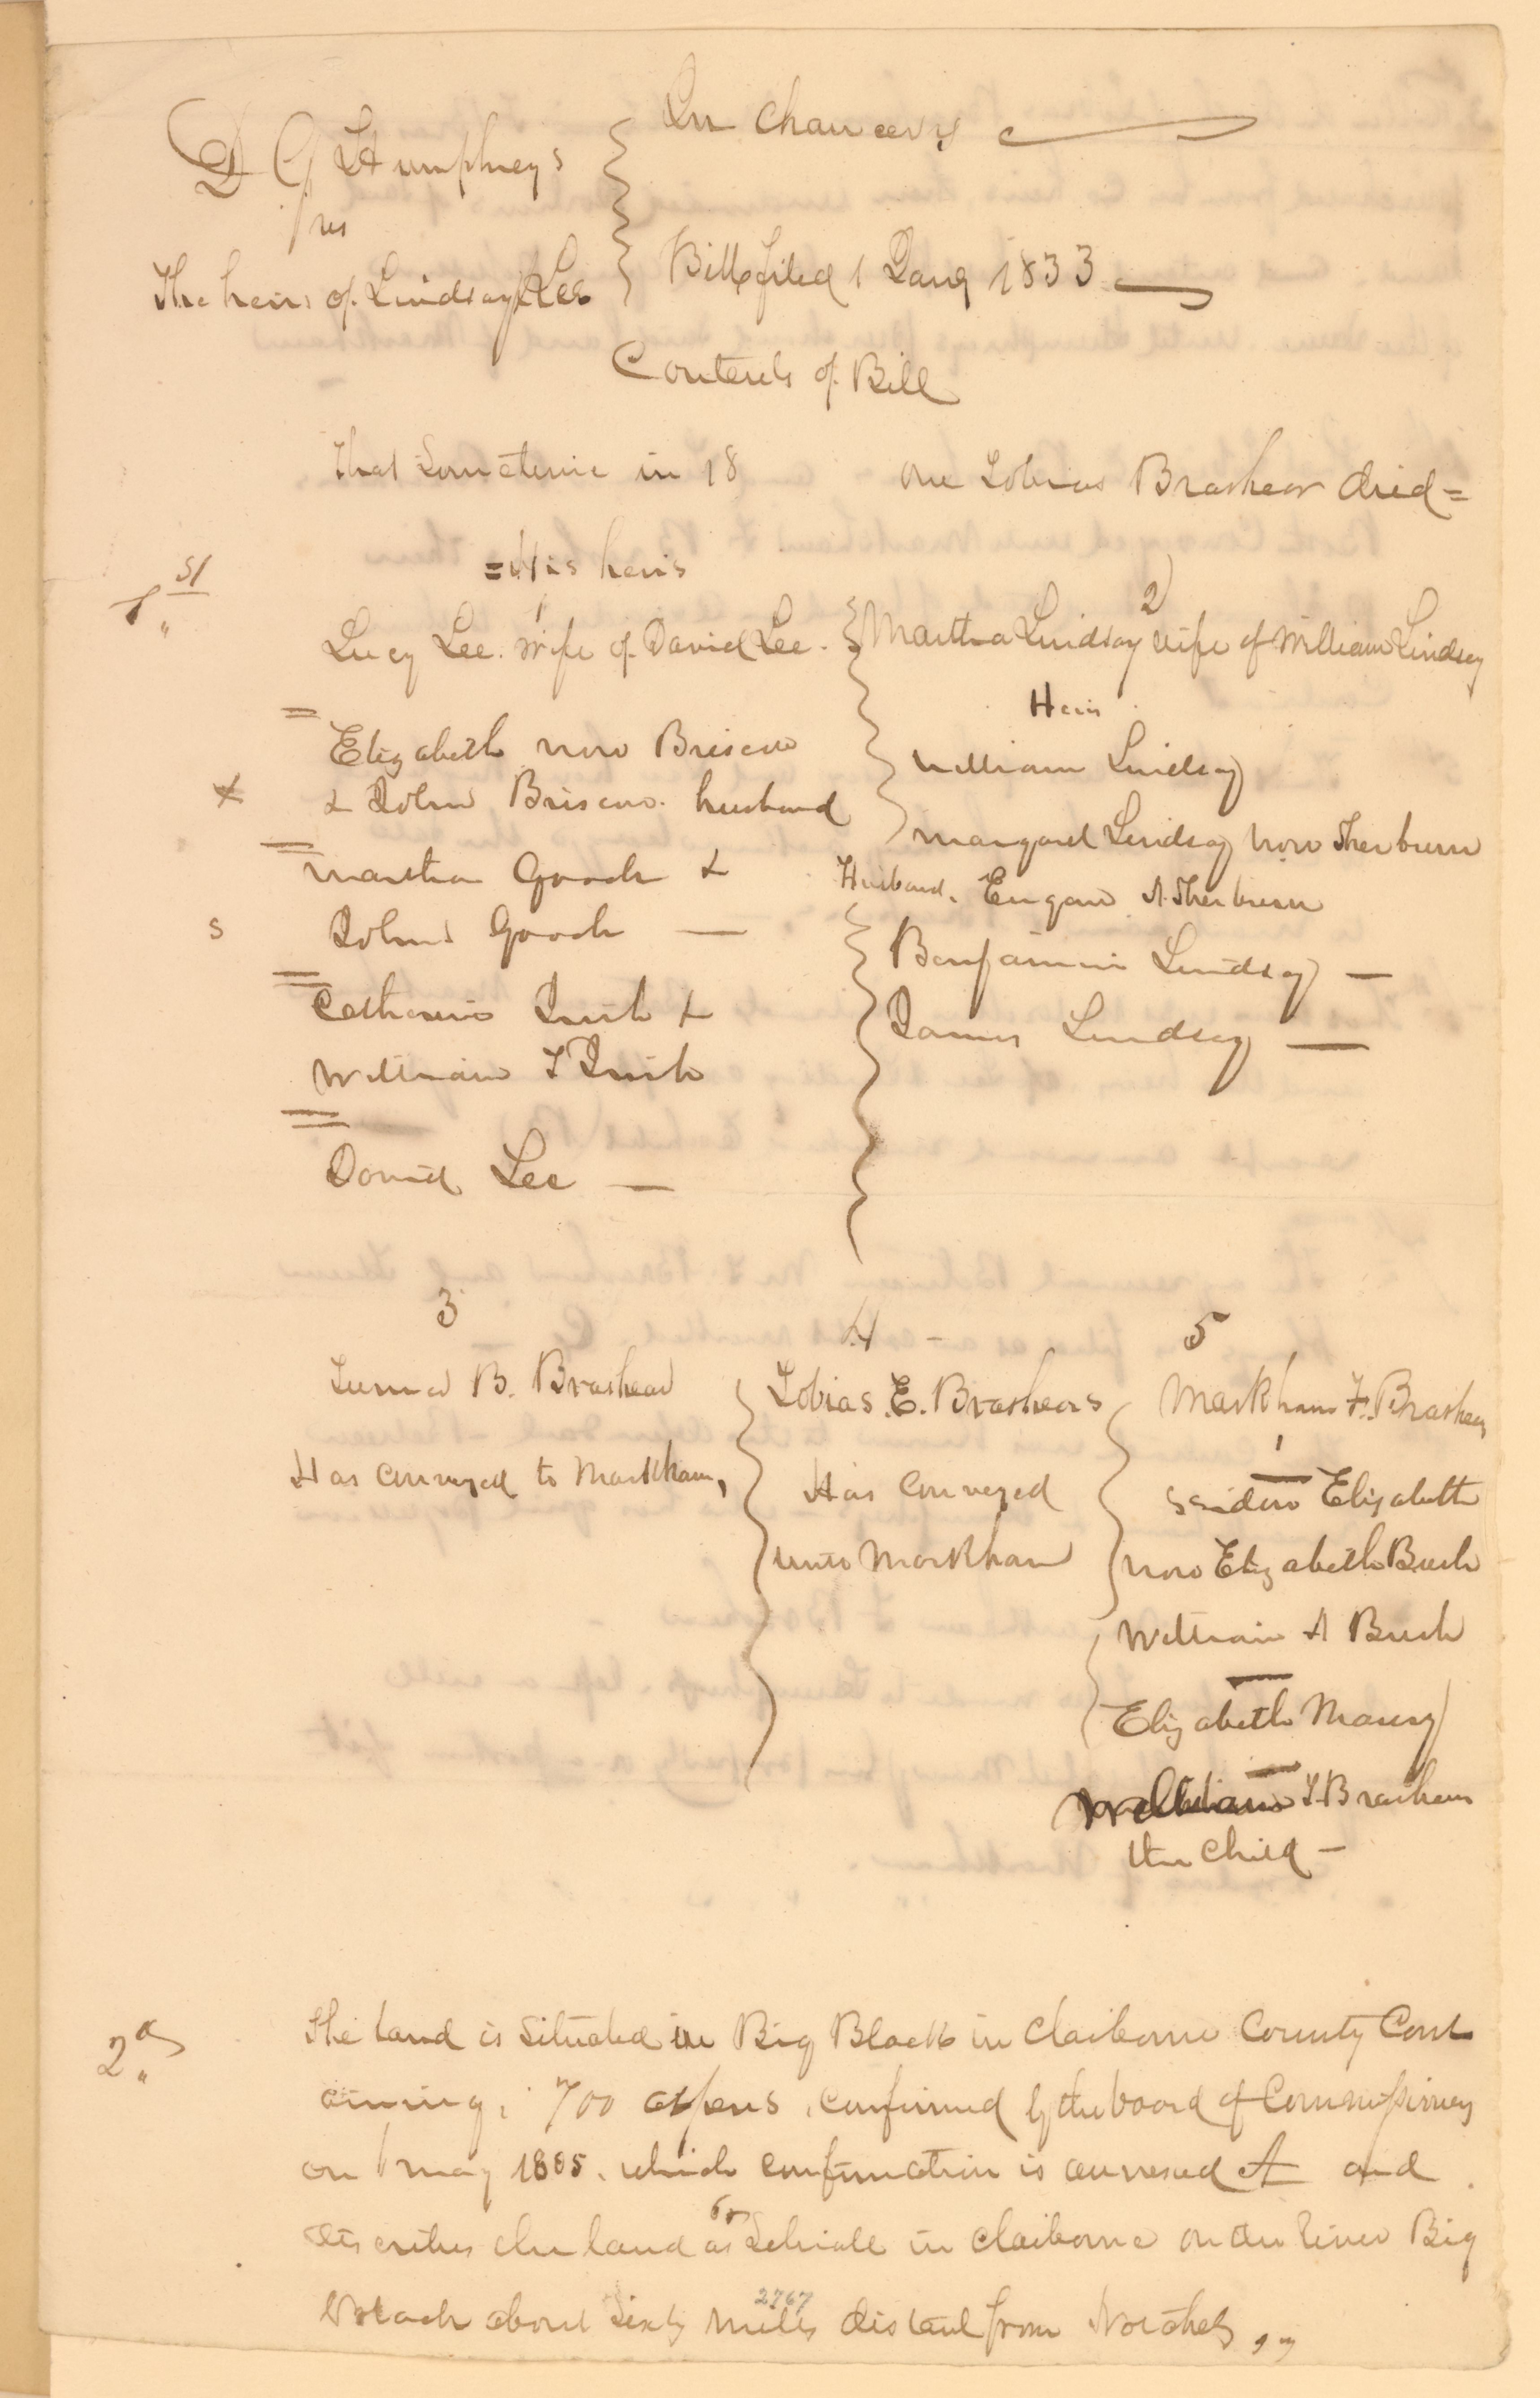 D G Humphreys
vs
The heirs of Lindsay & Lee
In Chancery
Bill filed 1 Jany 1833
Contents of Bill
That Sometime in 18 one Tobias Brashear died =
= His heirs
1st
1
Lucy Lee. wife of David Lee.
=
Elizabeth now Briscoe
x & John Briscoe. husband
=
Martha Gooch &
s John Gooch —
=
Catharine &
William T
=
David Lee —
2
Martha Lindsay wife of William Lindsay
Heirs
William Lindsay
Margaret Lindsay now Sherburn
Husband. A. Sherburn
Benjamin Lindsay —
James Lindsay —
3
B. Brashear
Has conveyed to Markham,
4
Tobias. E. Brashears
Has conveyed
unto Markham
5
Markham F. Brashear
1
Elizabeth
now Elizabeth Bush
William A Bush
Elizabeth Maury
T. Brashear
the child —
2d
The land is situated in Big Black in Claiborne County Cont
aining; 700 arpens, confirmed by the board of Commissioners
on 1 May 1805. which confirmation is annexed A and
describes the land as Situate in Claiborne on the river Big
Black about Sixty miles distant from Natchez,
2767